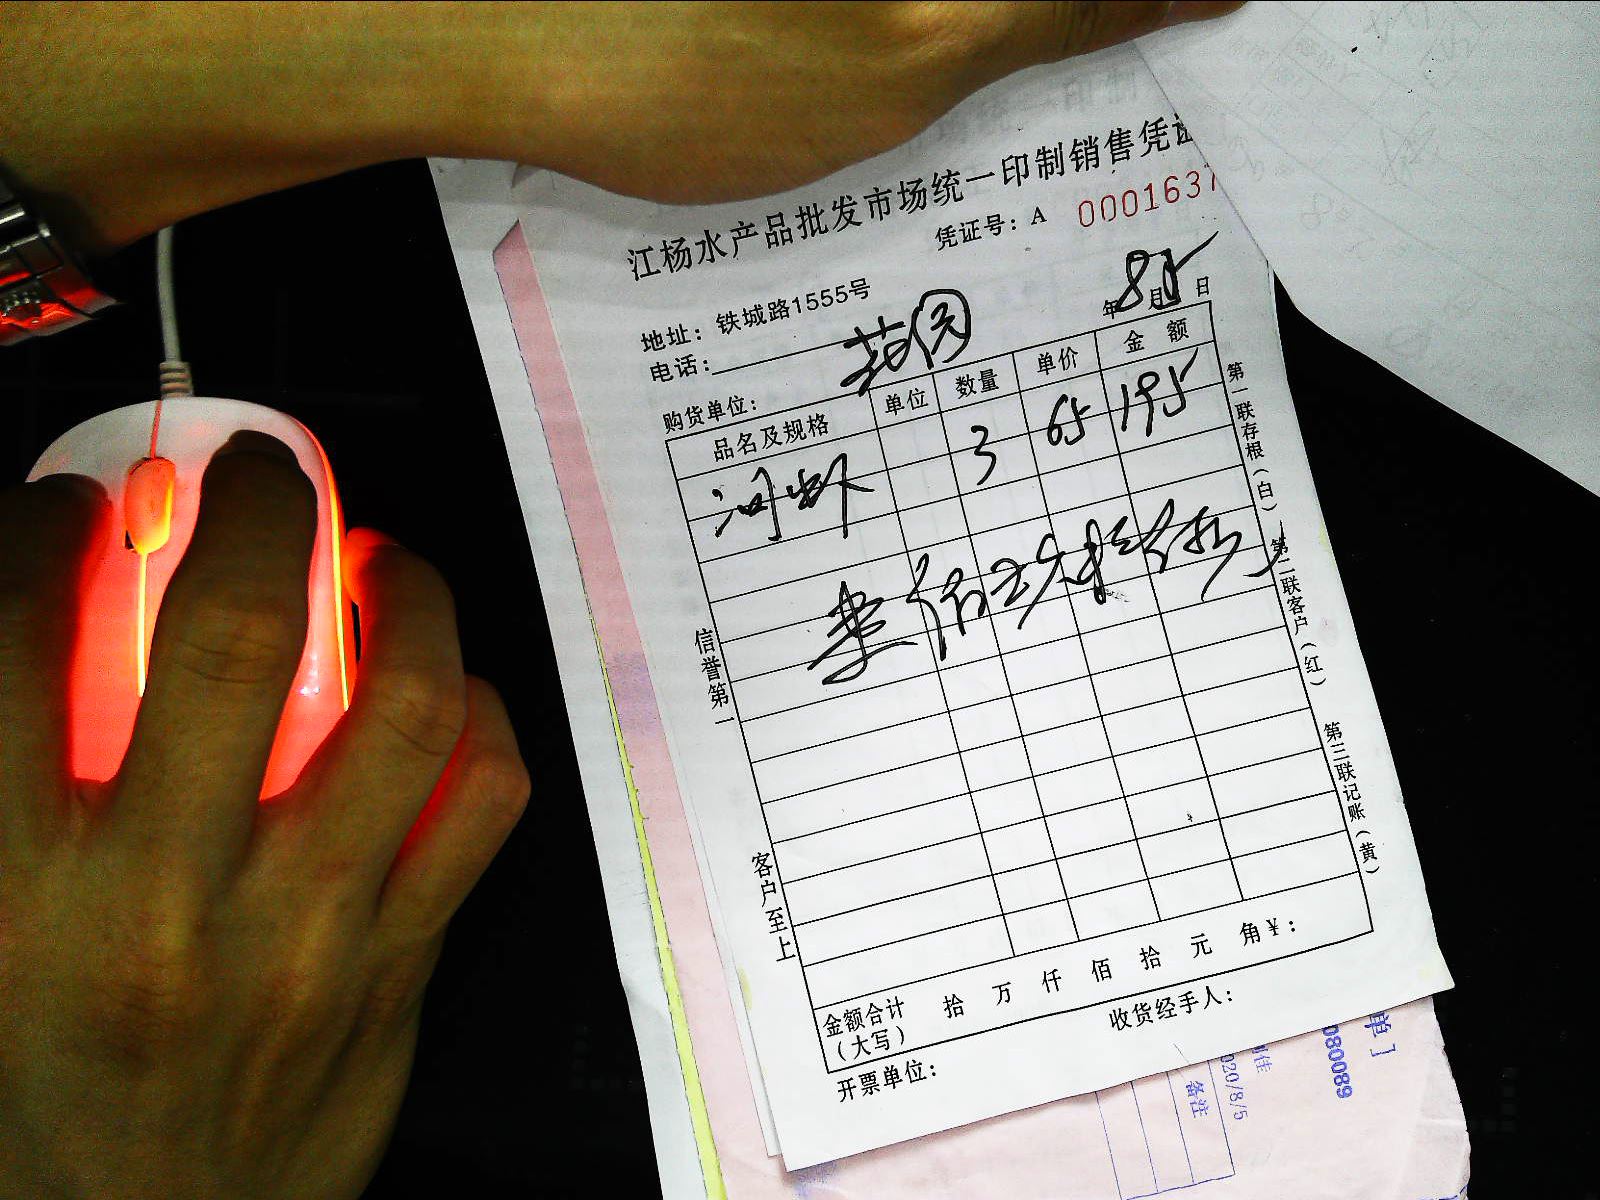 江杨水产品批发市场统一印制销售凭证
凭证号：A 0001637
地址：铁城路1555号
电话：
年8月5日
购货单位：
品名及规格 单位 数量 单价 金额
河虾 3 65 195
第一联存根（白）第二联客户（红） 第三联记账（黄）
信誉第一 客户至上
金额合计（大写） 拾 万 仟 佰 拾 元 角￥：
开票单位： 收货经手人：
单]
080089
佳
2020/8/5
备注